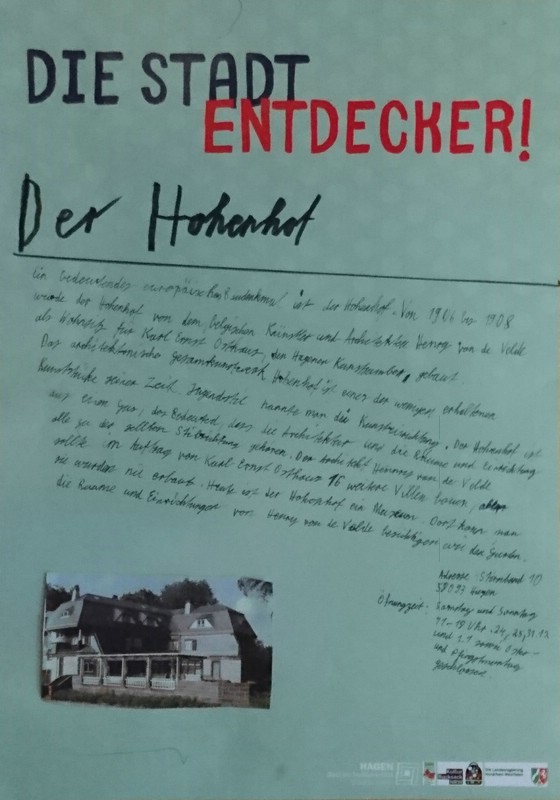 DIE STADT
ENTDECKER!
Der Hohenhof
Ein bedeutendes europäisches Baudenkmal ist der Hohenhof. Von 1904 bis 1908
wurde der Hohenhof von dem belgischen Künstler und Architekten Henry van de Velde
als Wohnsitz für Karl Ernst Osthaus, den Hagener Kunstsammler, gebaut.
Das architektonische Gesamtkunstwerk Hohenhof ist einer der wenigen erhaltenen
Kunststücke seiner Zeit. Jugendstil nannte man die Kunstrichtung. Der Hohenhof ist
aus einem Guss, das bedeutet, dass die Architektur und die Räume und Einrichtung
alle zu der selben Stilrichtung gehören. Der Architekt Henry van de Velde
sollte im Auftrag von Karl Ernst Osthaus 16 weitere Villen bauen, aber
sie wurden nie erbaut. Heute ist der Hohenhof ein Museum. Dort kann man
die Räume und Einrichtungen von Henry van de Velde besichtigen
Adresse: Stirnband 10
58093 Hagen
Öfnungszeit: Samstag und Sonntag
11-18 Uhr. 24., 25., 31.12
und 1.1 sowie Oster-
und
geschlossen.
HAGEN
Die Landesregierung
Nordrhein-Westfalen